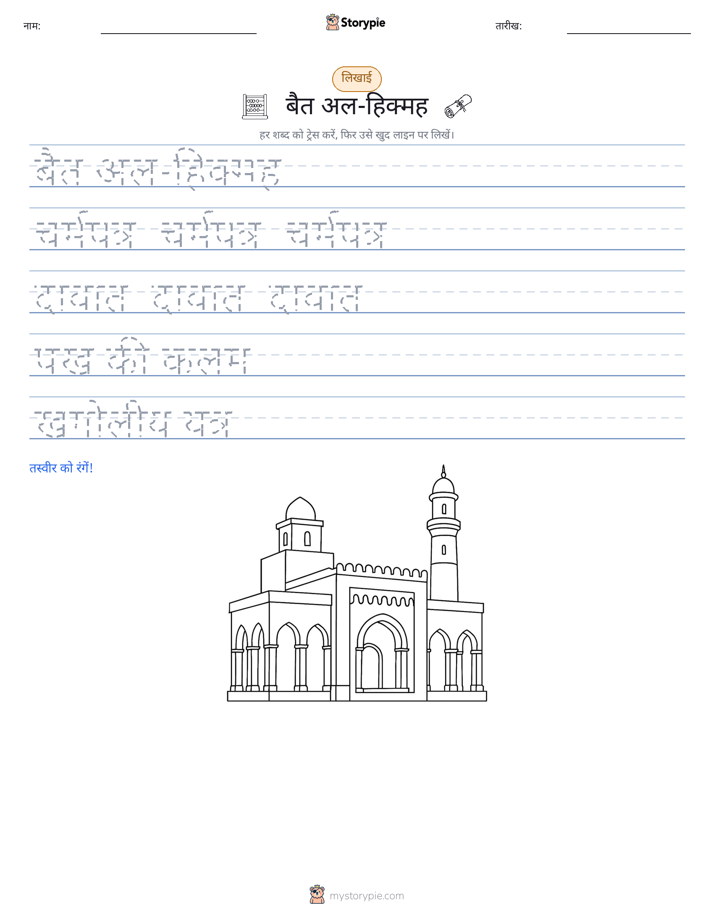 नाम:
Storypie
तारीख:
लिखाई
बैत अल-हिक्मह
हर शब्द को ट्रेस करें, फिर उसे खुद लाइन पर लिखें।
बैत अल-हिक्मह
चर्मपत्र चर्मपत्र चर्मपत्र
दावात दावात दावात
पख की कलम
खगोलीय यत्र
तस्वीर को रंगें!
mystorypie.com